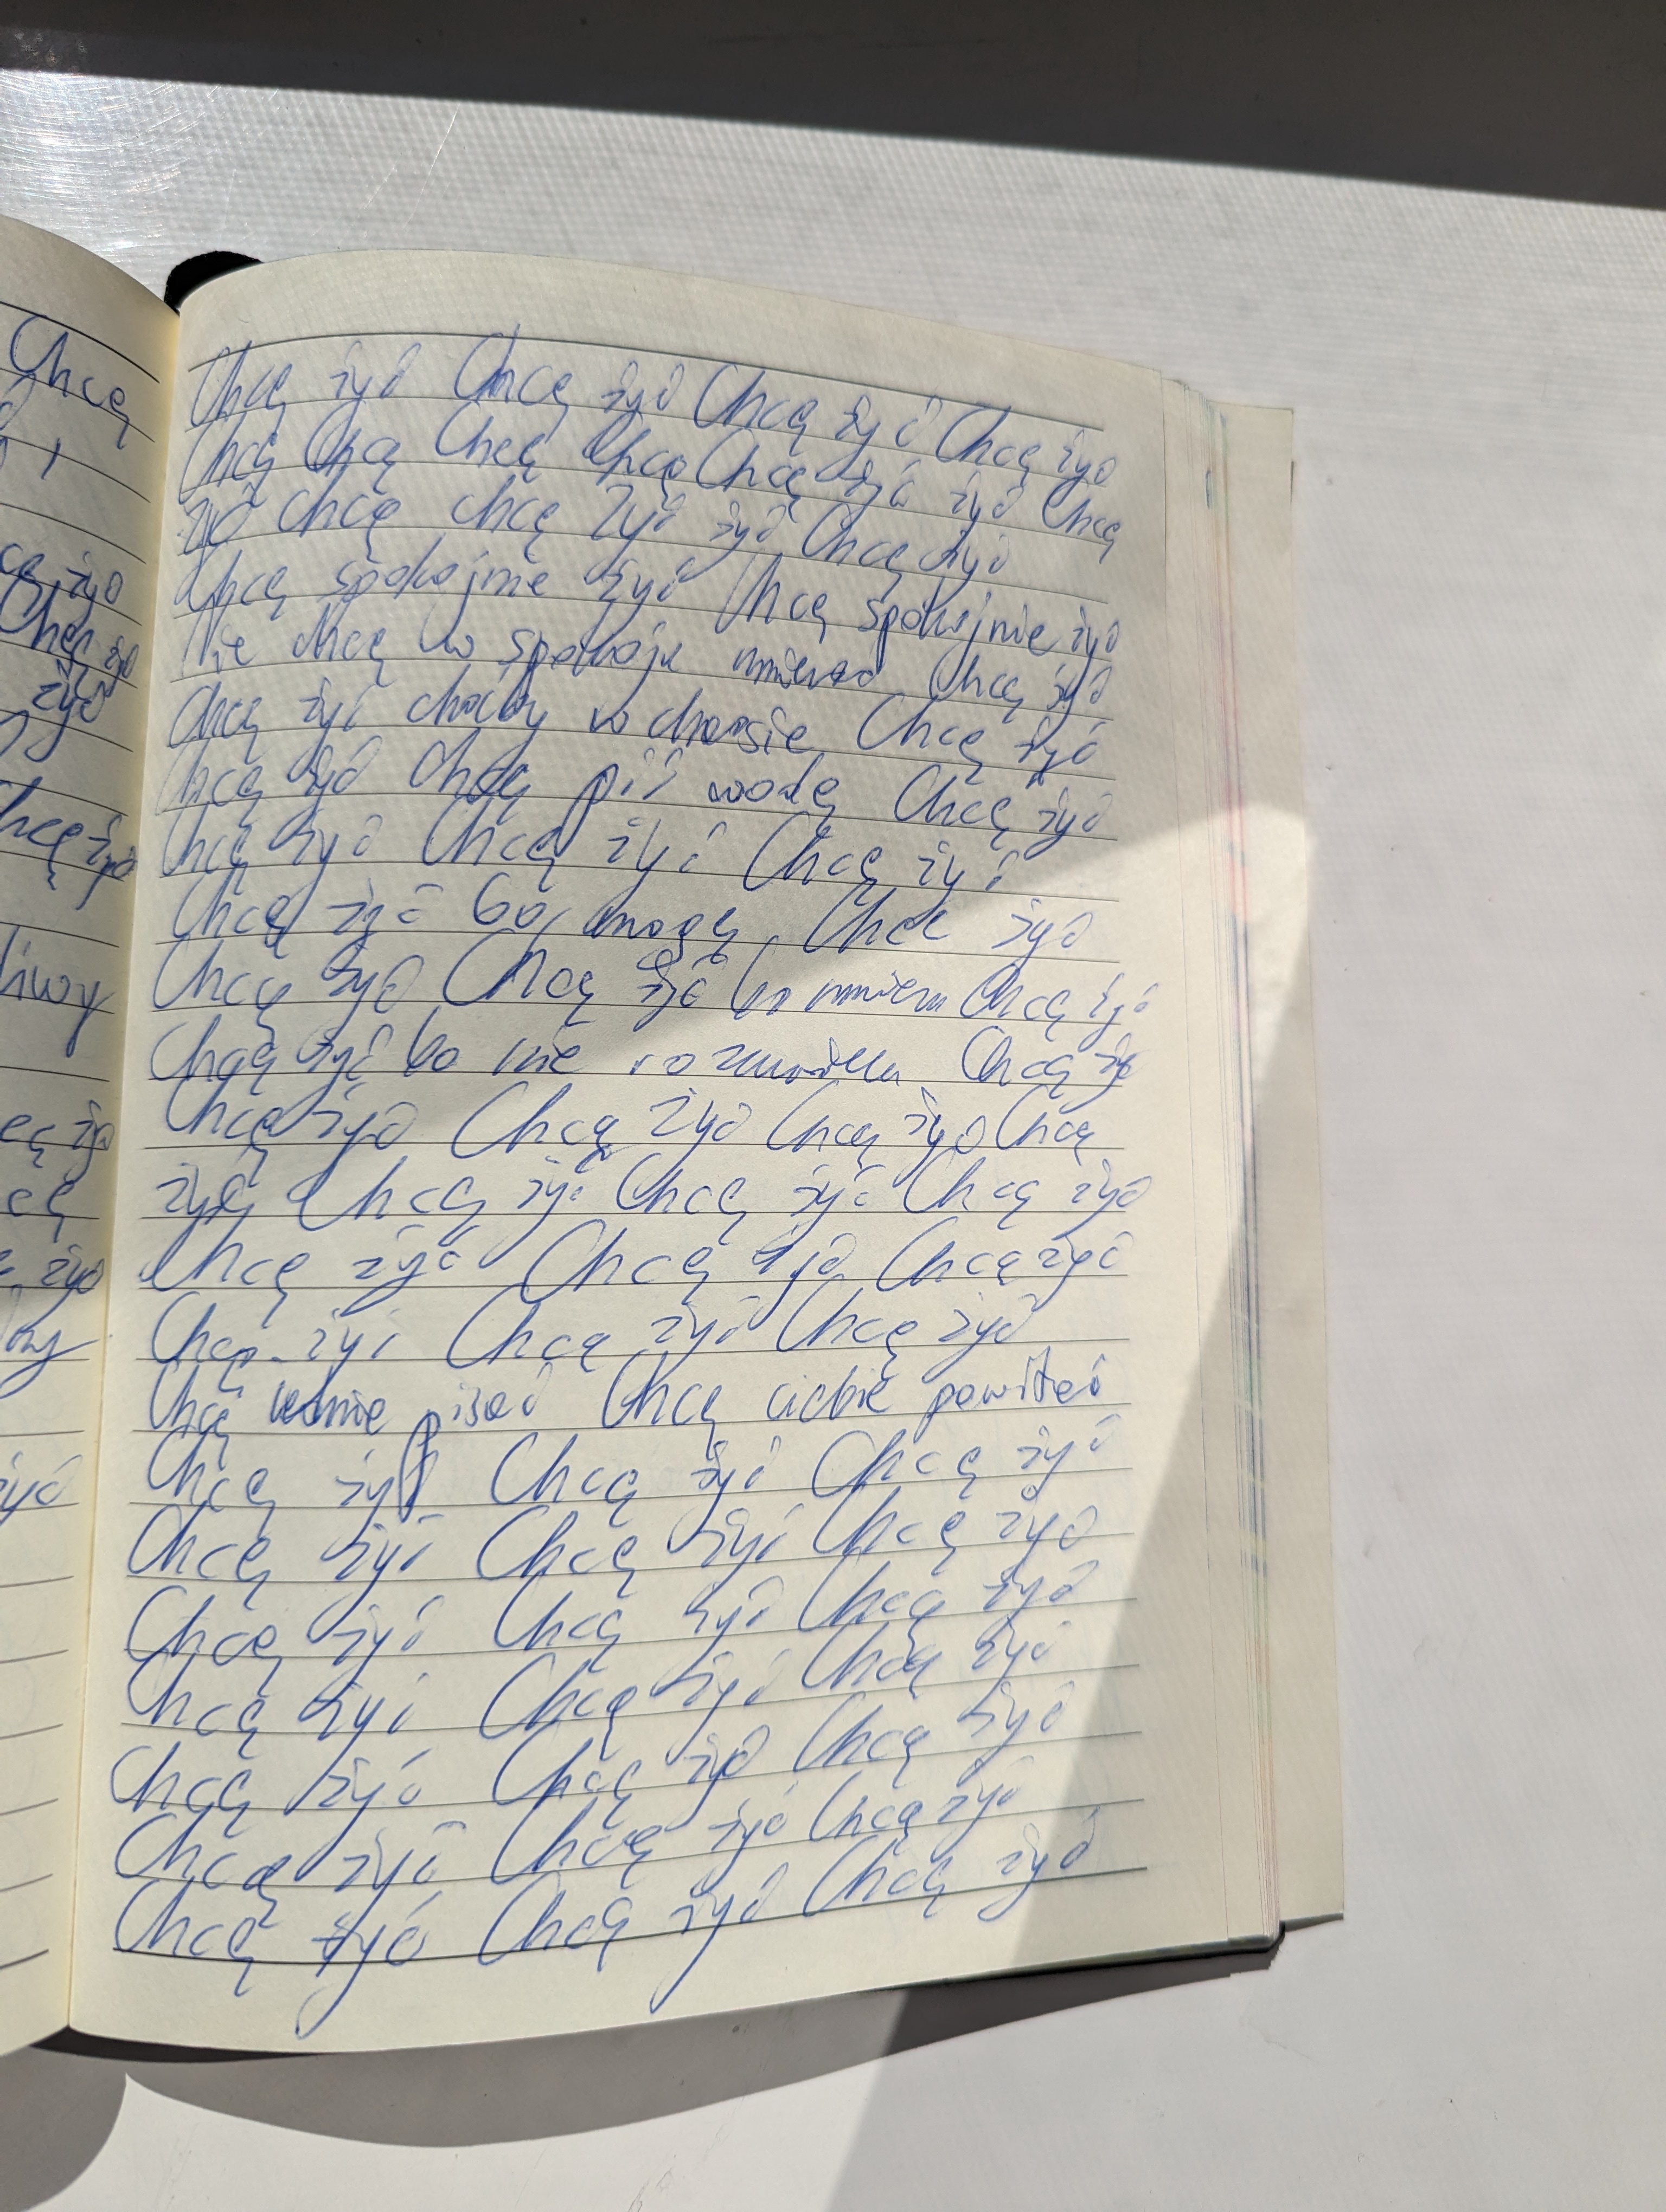 Chcę
Chcę żyć Chcę żyć Chcę żyć Chcę żyć
Chcę Chcę Chcę Chcę Chcę żyć żyć Chcę
żyć chcę chcę żyć żyć Chcę żyć
Chcę spokojnie żyć Chcę spokojnie żyć
Nie chcę w spokoju umierać Chcę żyć
Chcę żyć choćby w chaosie Chcę żyć
Chcę żyć Chcę pić wodę Chcę żyć
Chcę żyć Chcę żyć Chcę żyć
Chcę żyć bo mogę Chcę żyć
Chcę żyć Chcę żyć bo umiem Chcę żyć
Chcę żyć bo nie rozumiem Chcę żyć
Chcę żyć Chcę żyć Chcę żyć Chcę
żyć Chcę żyć Chcę żyć Chcę żyć
Chcę żyć Chcę żyć Chcę żyć
Chcę żyć Chcę żyć Chcę żyć
Chcę ładnie pisać Chcę ciebie powitać
Chcę żyć Chcę żyć Chcę żyć
Chcę żyć Chcę żyć Chcę żyć
Chcę żyć Chcę żyć Chcę żyć
Chcę żyć Chcę żyć Chcę żyć
Chcę żyć Chcę żyć Chcę żyć
Chcę żyć Chcę żyć Chcę żyć
Chcę żyć Chcę żyć Chcę żyć